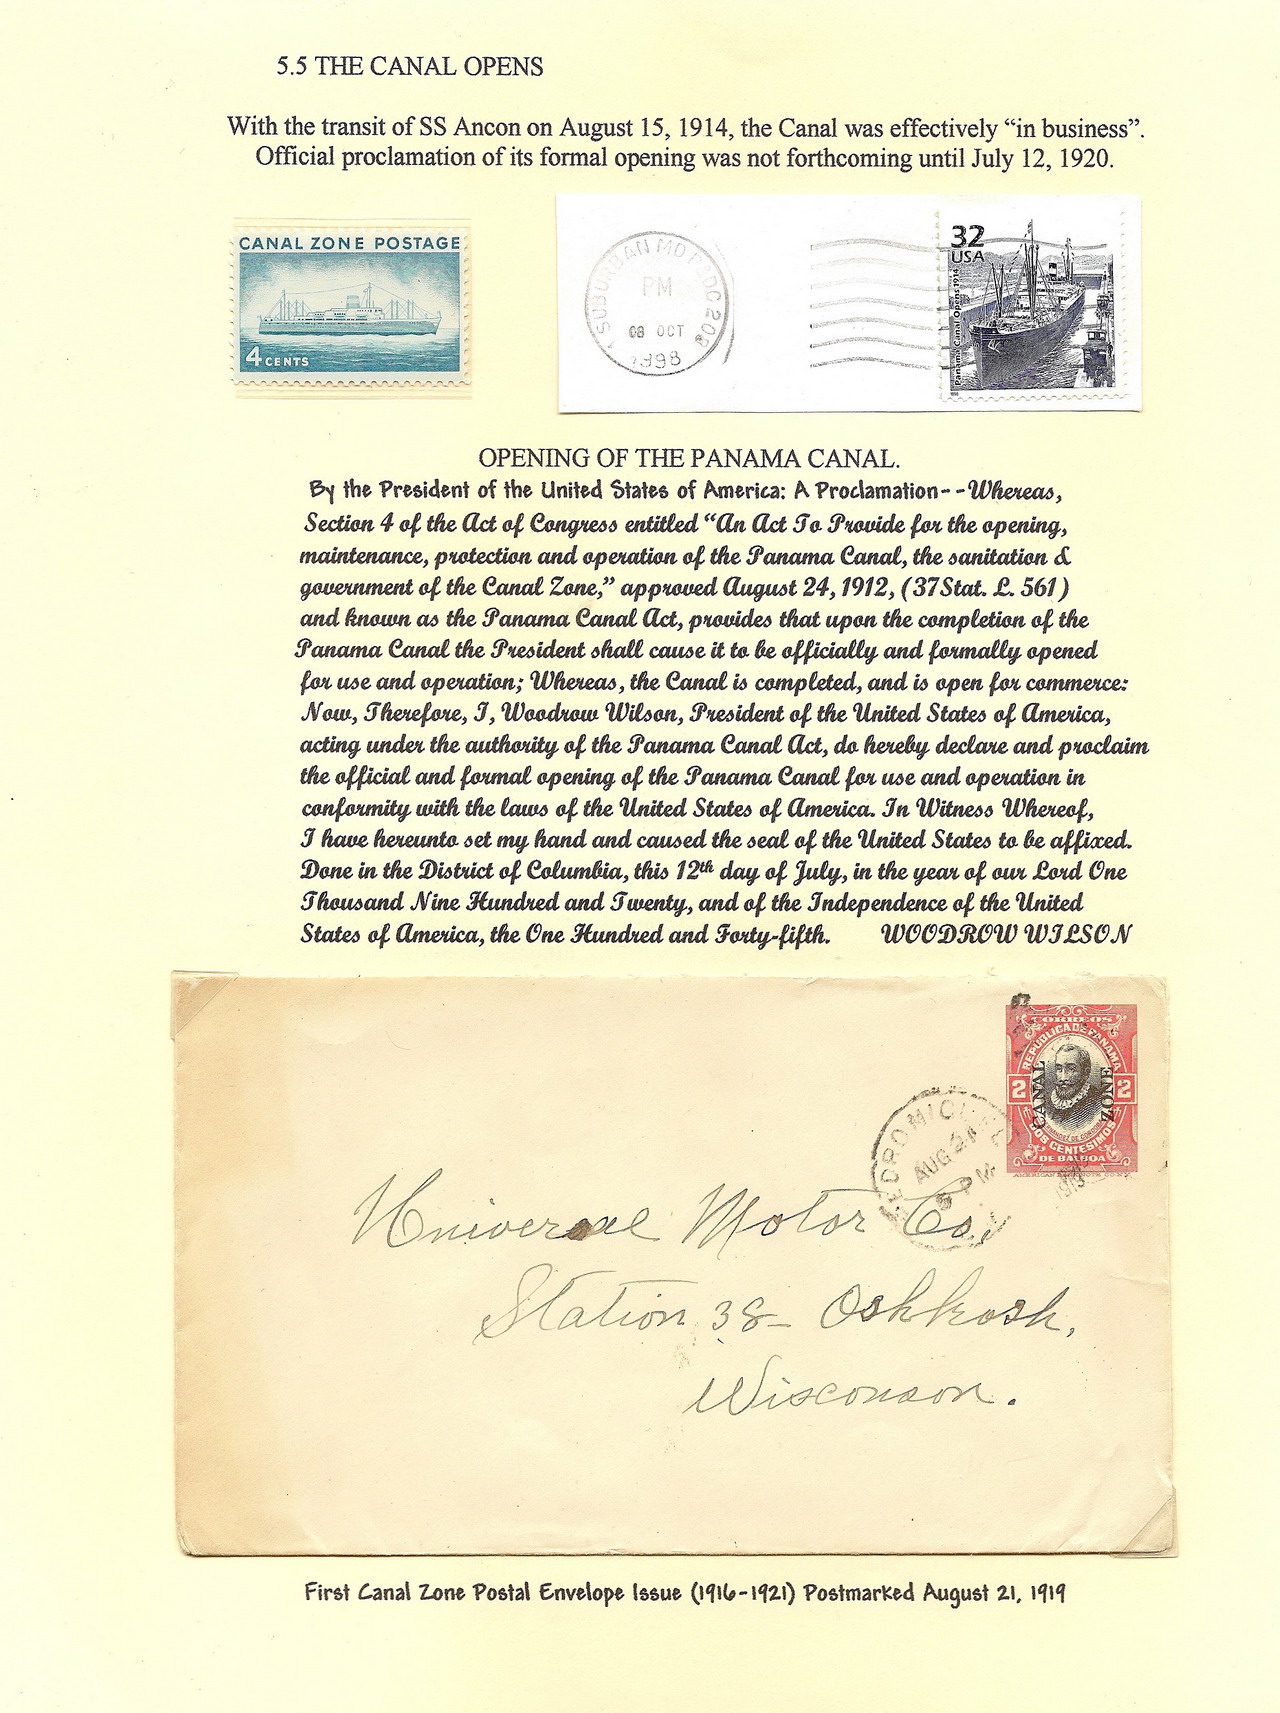 5.5 THE CANAL OPENS
With the transit of SS Ancon on August 15, 1914, the Canal was effectively “in business”.
Official proclamation of its formal opening was not forthcoming until July 12, 1920.
CANAL ZONE POSTAGE
4 CENTS
SUBURBAN MD
PM
08 OCT
1998
32
USA
Panama Canal Opens 1914
OPENING OF THE PANAMA CANAL.
By the President of the United States of America: A Proclamation--Whereas,
Section 4 of the Act of Congress entitled “An Act To Provide for the opening,
maintenance, protection and operation of the Panama Canal, the sanitation &
government of the Canal Zone,” approved August 24, 1912, (37Stat. L. 561)
and known as the Panama Canal Act, provides that upon the completion of the
Panama Canal the President shall cause it to be officially and formally opened
for use and operation; Whereas, the Canal is completed, and is open for commerce:
Now, Therefore, I, Woodrow Wilson, President of the United States of America,
acting under the authority of the Panama Canal Act, do hereby declare and proclaim
the official and formal opening of the Panama Canal for use and operation in
conformity with the laws of the United States of America. In Witness Whereof,
I have hereunto set my hand and caused the seal of the United States to be affixed.
Done in the District of Columbia, this 12th day of July, in the year of our Lord One
Thousand Nine Hundred and Twenty, and of the Independence of the United
States of America, the One Hundred and Forty-fifth. WOODROW WILSON
CORREOS
REPUBLICA DE PANAMA
2 CANAL ZONE 2
DOS CENTESIMOS
DE BALBOA
AUG 21
PM
Universal Motor Co,
Station 38- Oshkosh,
Wisconson.
First Canal Zone Postal Envelope Issue (1916-1921) Postmarked August 21, 1919